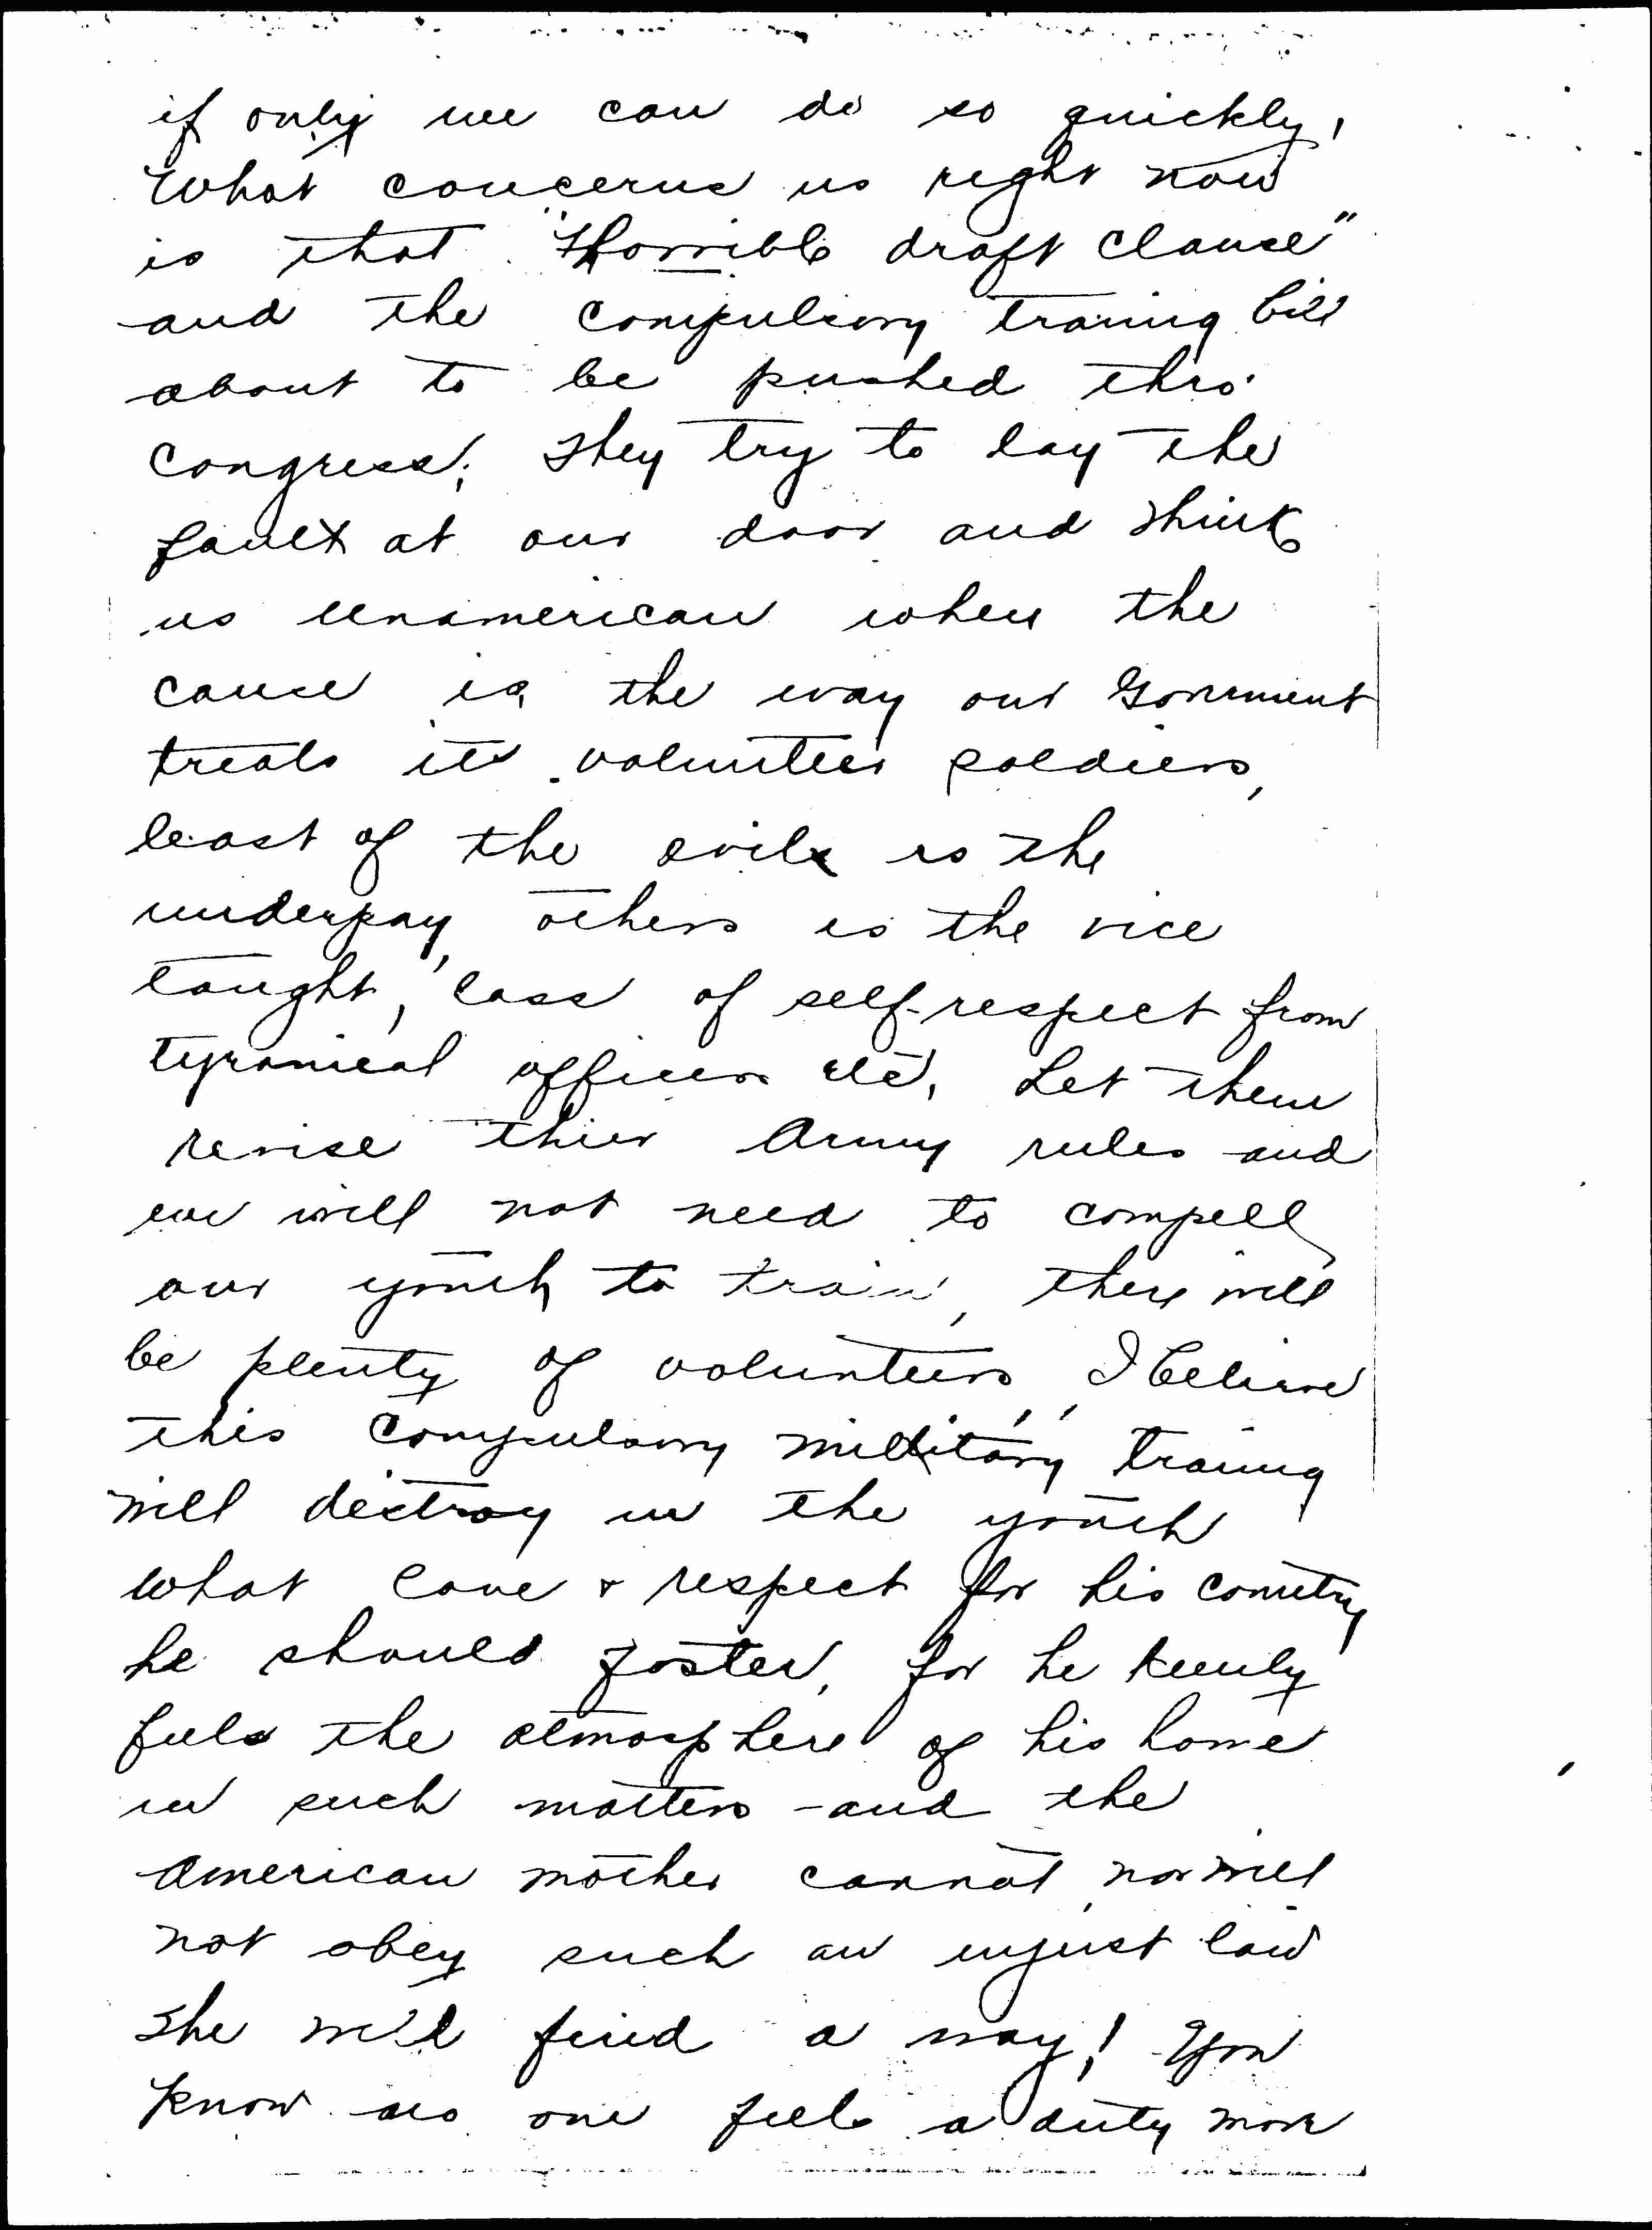 if only we can do so quickly,
What concerns us right now
is that "Horrible draft clause"
and the compulsory traning bill
about to be pushed thro'
congress; They try to lay the
fault at our door and think
us unamerican when the
cause is the way our Goverment
treats its volunteer soldiers,
least of the evils is the
underpay, others is the vice
taught, loss of self-respect from
tyranical officers etc, Let them
revise thier Army rules and
we will not need to compell
our youth to train, there will
be plenty of volunteers, I believe
this compulsory military traning
will destroy in the youth
what love & respect for his country
he should foster, for he keenly
feels the atmosphere of his home
in such matters and the
American mother cannot, nor will
not obey such an unjust law
She will find a way! You
know as one feels a duty more